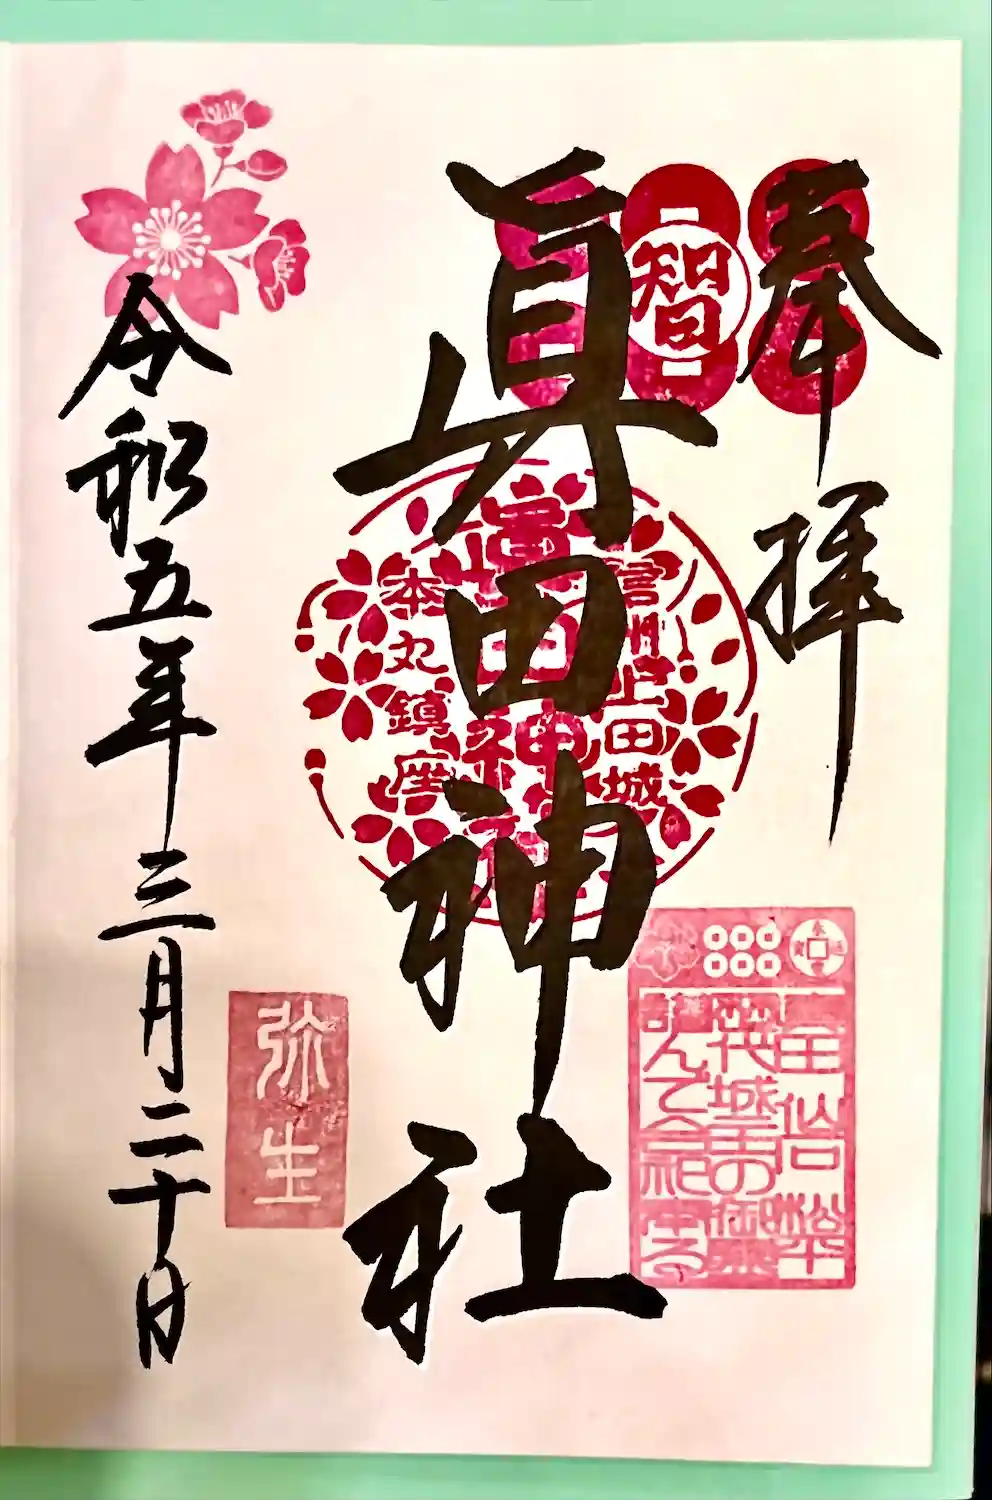 奉拝
智
眞田神社
信州上田城
眞田神社
本丸鎮座
歴代城主の御霊
謹んで合祀奉る
弥生
令和五年三月二十日